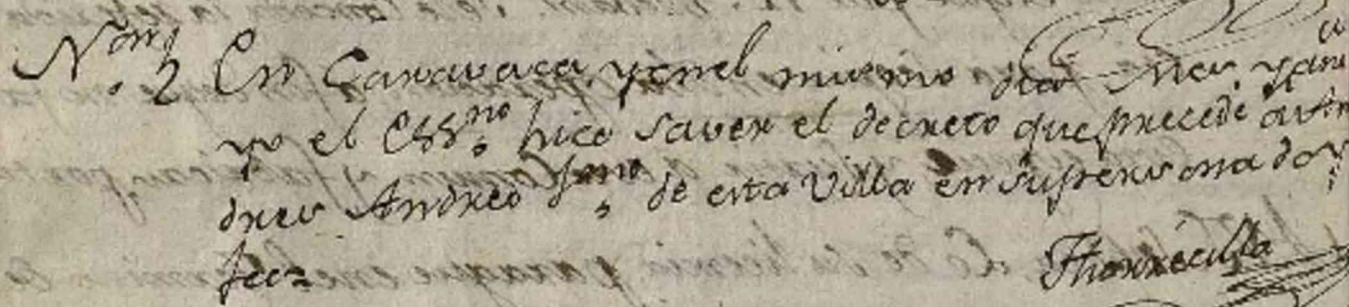 Non 2 En Caravaca, y en el mismo dia mes y año
yo el Essno hice saver el decreto que precede a An
dres Andreo Jmo de esta Villa en su persona doy
fee=
Thorrecilla